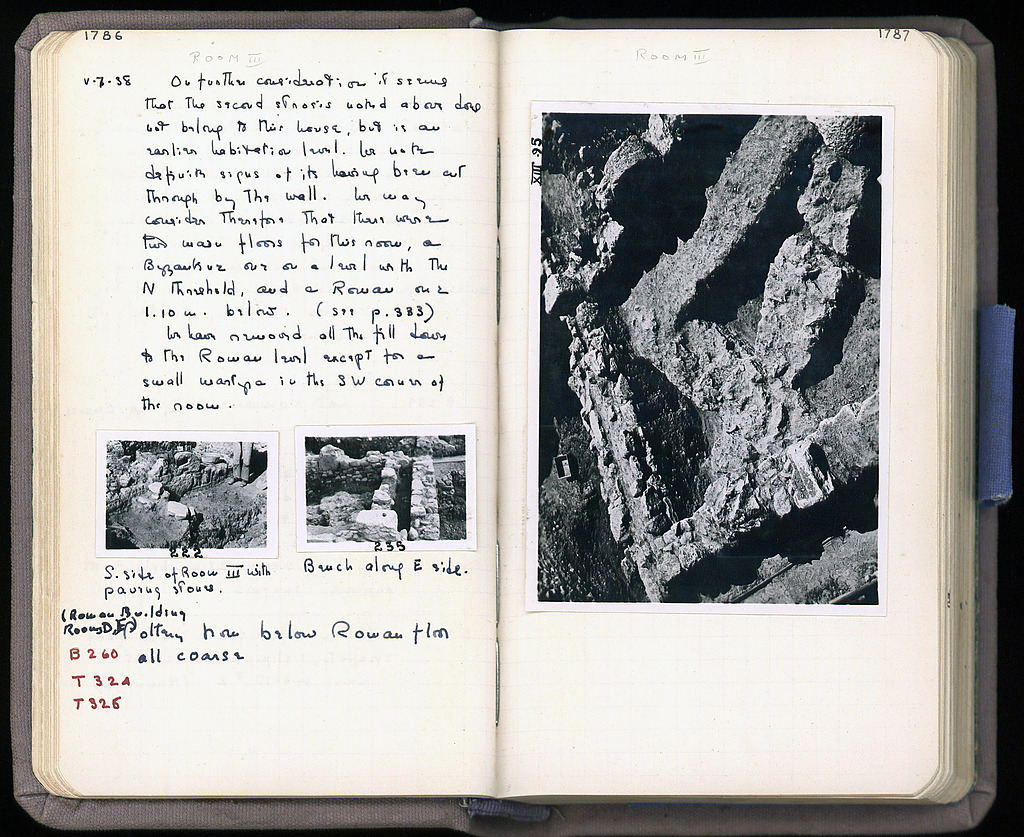 1786
ROOM III
V.7.38 On further consideration it seems
that the second strosis noted above does
not belong to this house, but is an
earlier habitation level. We note
definite signs of its having been cut
through by the wall. We may
consider therefore that there were
two main floors for this room, a
Byzantine one on a level with the
N threshold, and a Roman one
1.10 m. below. (see p. 333)
We have removed all the fill down
to the Roman level except for a
small martyra in the SW corner of
the room.
222
S. side of Room III with
paving stones.
233
Bench along E side.
(Roman Building
Rooms D, E)
Pottery from below Roman floor
all coarse
B 260
T 324
T 325
1787
ROOM III
XIII 95